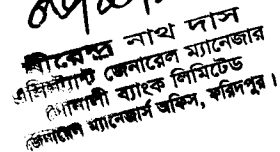 ধীরেন্দ্র নাথ দাস
এসিস্ট্যান্ট জেনারেল ম্যানেজার
সোনালী ব্যাংক লিমিটেড
জেনারেল ম্যানেজার্স অফিস, ফরিদপুর।